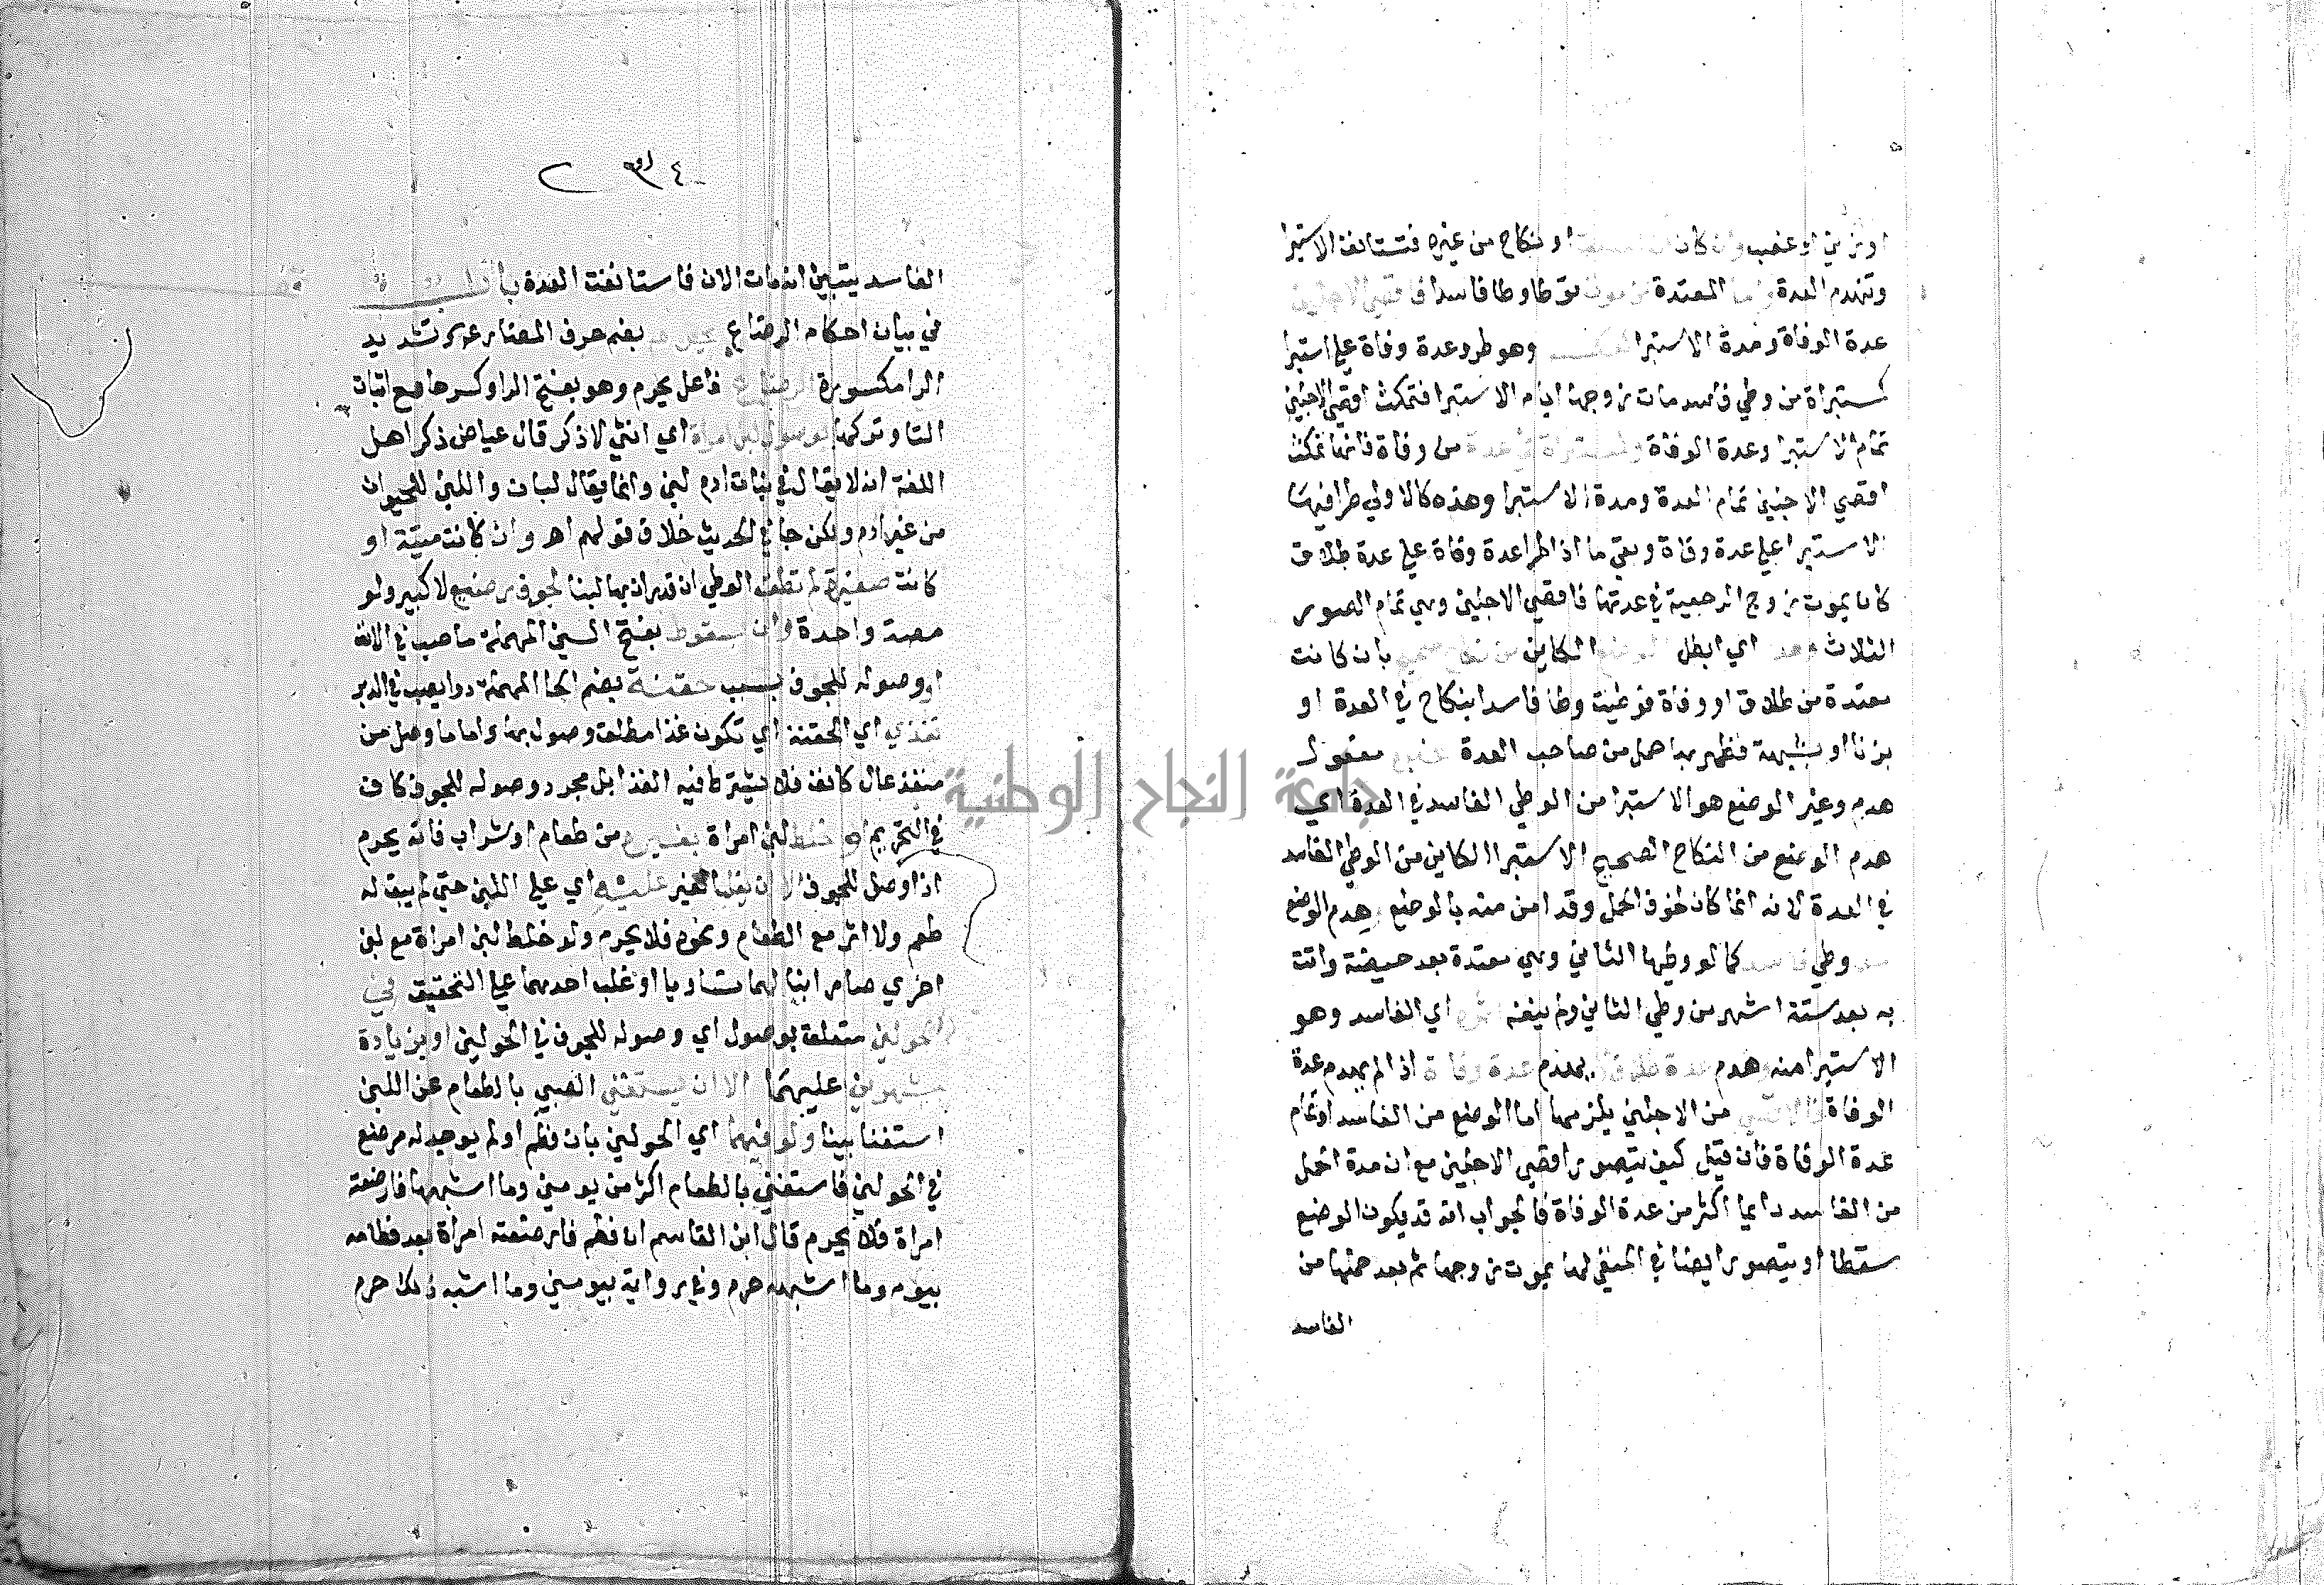 او من زنى او غصب وان كان او نكاح من غيره فتستانف الاستبرا
وتنهدم العدة واما المعتدة من موت توطا وطا فاسدا فاقصى الاجلين
عدة الوفاة ومدة الاستبرا وهو طرو عدة وفاة علي استبرا
كمستبراة من وطي فاسد مات زوجها ايام الاستبرا فتمكث اقصى الاجلين
تمام الاستبرا وعدة الوفاة من وفاة فانها تمكث
اقصي الاجلين تمام العدة ومدة الاستبرا وهذه كالاولي طرا فيها
الاستبرا علي عدة وفاة وبقي ما اذا طرا عدة وفاة علي عدة طلاق
كان يموت زوج الرجعية في عدتها فاقصي الاجلين وهي تمام الصور
الثلاث وهدم اي ابطل الوضع الكاين من نكاح صحيح بان كانت
معتدة من طلاق او وفاة فوطيت وطا فاسدا بنكاح في العدة او
بزنا او بشبهة فظهر بها حمل من صاحب العدة مفعول
هدم وغير الوضع هو الاستبرا من الوطي الفاسد في العدة اي
هدم الوضع من النكاح الصحيح الاستبرا الكاين من الوطي الفاسد
في العدة لانه انما كان لخوف الحمل وقد امن منه بالوضع وهدم الوضع
وطي فاسد كما لو وطيها الثاني وهي معتدة بعد حيضة واتت
به بعد ستة اشهر من وطي الثاني ولم ينفه اي الفاسد وهو
الاستبرا منه وهدم عدة طلاق لا يهدم عدة وفاة اذا لم يهدم عدة
الوفاة فالاقصي من الاجلين يلزمها اما الوضع من الفاسد او تمام
عدة الوفاة فان قيل كيف يتصور اقصي الاجلين مع ان مدة الحمل
من الفاسد دايما اكثر من عدة الوفاة فالجواب انه قد يكون الوضع
سقطا او يتصور ايضا في المنفي لها يموت زوجها ثم بعد حملها من
الفاسد
الفاسد يتبين انه مات الان فاستانفت العدة
في بيان احكام الرضاع بضم حرف المضارعة وتشديد
الرا مكسورة الرضاع فاعل يحرم وهو بفتح الرا وكسرها مع اثبات
التا وتركها بوصول لبن امراة اي انثي لا ذكر قال عياض ذكر اهل
اللغة انه لا يقال في بنات ادم لبن وانما يقال لبان واللبن للحيوان
من غير ادم ولكن جا في الحديث خلاف قولهم اهـ وان كانت ميتة او
كانت صغيرة لم تطق الوطي ان قدر ان بها لبنا لجوف رضيع لا كبير ولو
مصة واحدة وان بسقوط بفتح السين المهملة ما صب في الانف
او وصوله للجوف بسبب حقنة بضم الحا المهملة دوا يصب في الدبر
تغذي اي الحقنة اي تكون غذا مطلق وصول بها واما ما وصل من
منفذ عال كانف فلا يشترط فيه الغذا بل مجرد وصوله للجوف كاف
في التحريم او خلط لبن امراة بغيره من طعام او شراب فانه يحرم
اذا وصل للجوف الا ان يغلب الغير عليه اي علي اللبن حتي لم يبق له
طعم ولا اثر مع الطعام ونحوه فلا يحرم ولو خلط لبن امراة مع لبن
اخري صار ابنا لهما تساويا او غلب احدهما علي التحقيق في
الحولين متعلق بوصول اي وصوله للجوف في الحولين او بزيادة
شهرين عليهما الا ان يستغني الصبي بالطعام عن اللبن
استغنا بينا ولو فيهما اي الحولين بان فطم او لم يوجد له مرضع
في الحولين فاستغني بالطعام اكثر من يومين وما اشبهها فارضعته
امراة فلا يحرم قال ابن القاسم ان فطم فارضعته امراة بعد فطامه
بيوم وما اشبهه حرم وفي رواية بيومين وما اشبه ذلك حرم
جامعة النجاح الوطنية